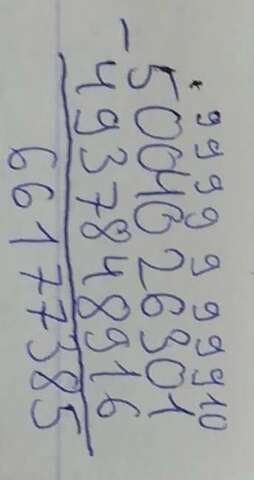 . 9 9 9 9 9 9 9 9 10
- 5004026301
4937848916
66177385